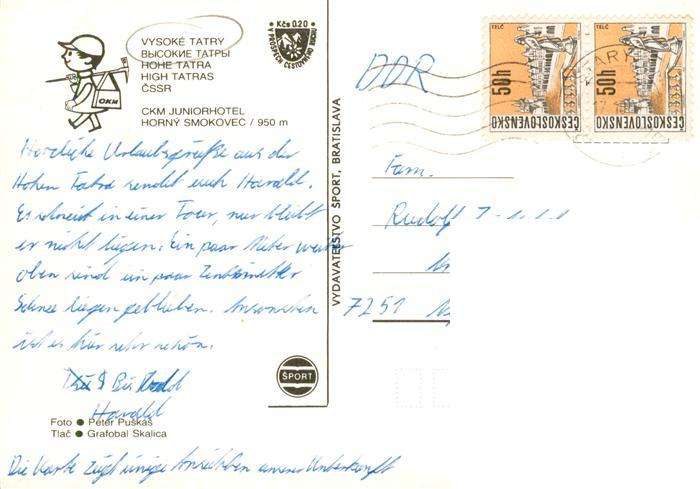 VYSOKÉ TATRY
ВЫСОКИЕ ТАТРЫ
HOHE TATRA
HIGH TATRAS
ČSSR
CKM JUNIORHOTEL
HORNÝ SMOKOVEC / 950 m
CKM
Kčs 0.20
V PROSPECH CESTOVNÉHO RUCHU
Herzliche Urlaubsgrüße aus der
Hohen Tatra sendet euch Harald.
Es schneit in einer Tour, nur bleibt
er nicht liegen. Ein paar Meter weiter
oben sind ein paar Zentimeter
Schnee liegen geblieben. Ansonsten
ist es hier sehr schön.
Bis Bald
Harald
Foto ● Peter Puškáš
Tlač ● Grafobal Skalica
Die Karte zeigt einige Ansichten unserer Unterkunft
VYDAVATEĽSTVO ŠPORT, BRATISLAVA
ŠPORT
DDR
TELČ
50h
ČESKOSLOVENSKO
TELČ
50h
ČESKOSLOVENSKO
Fam.
Rudolf
7251